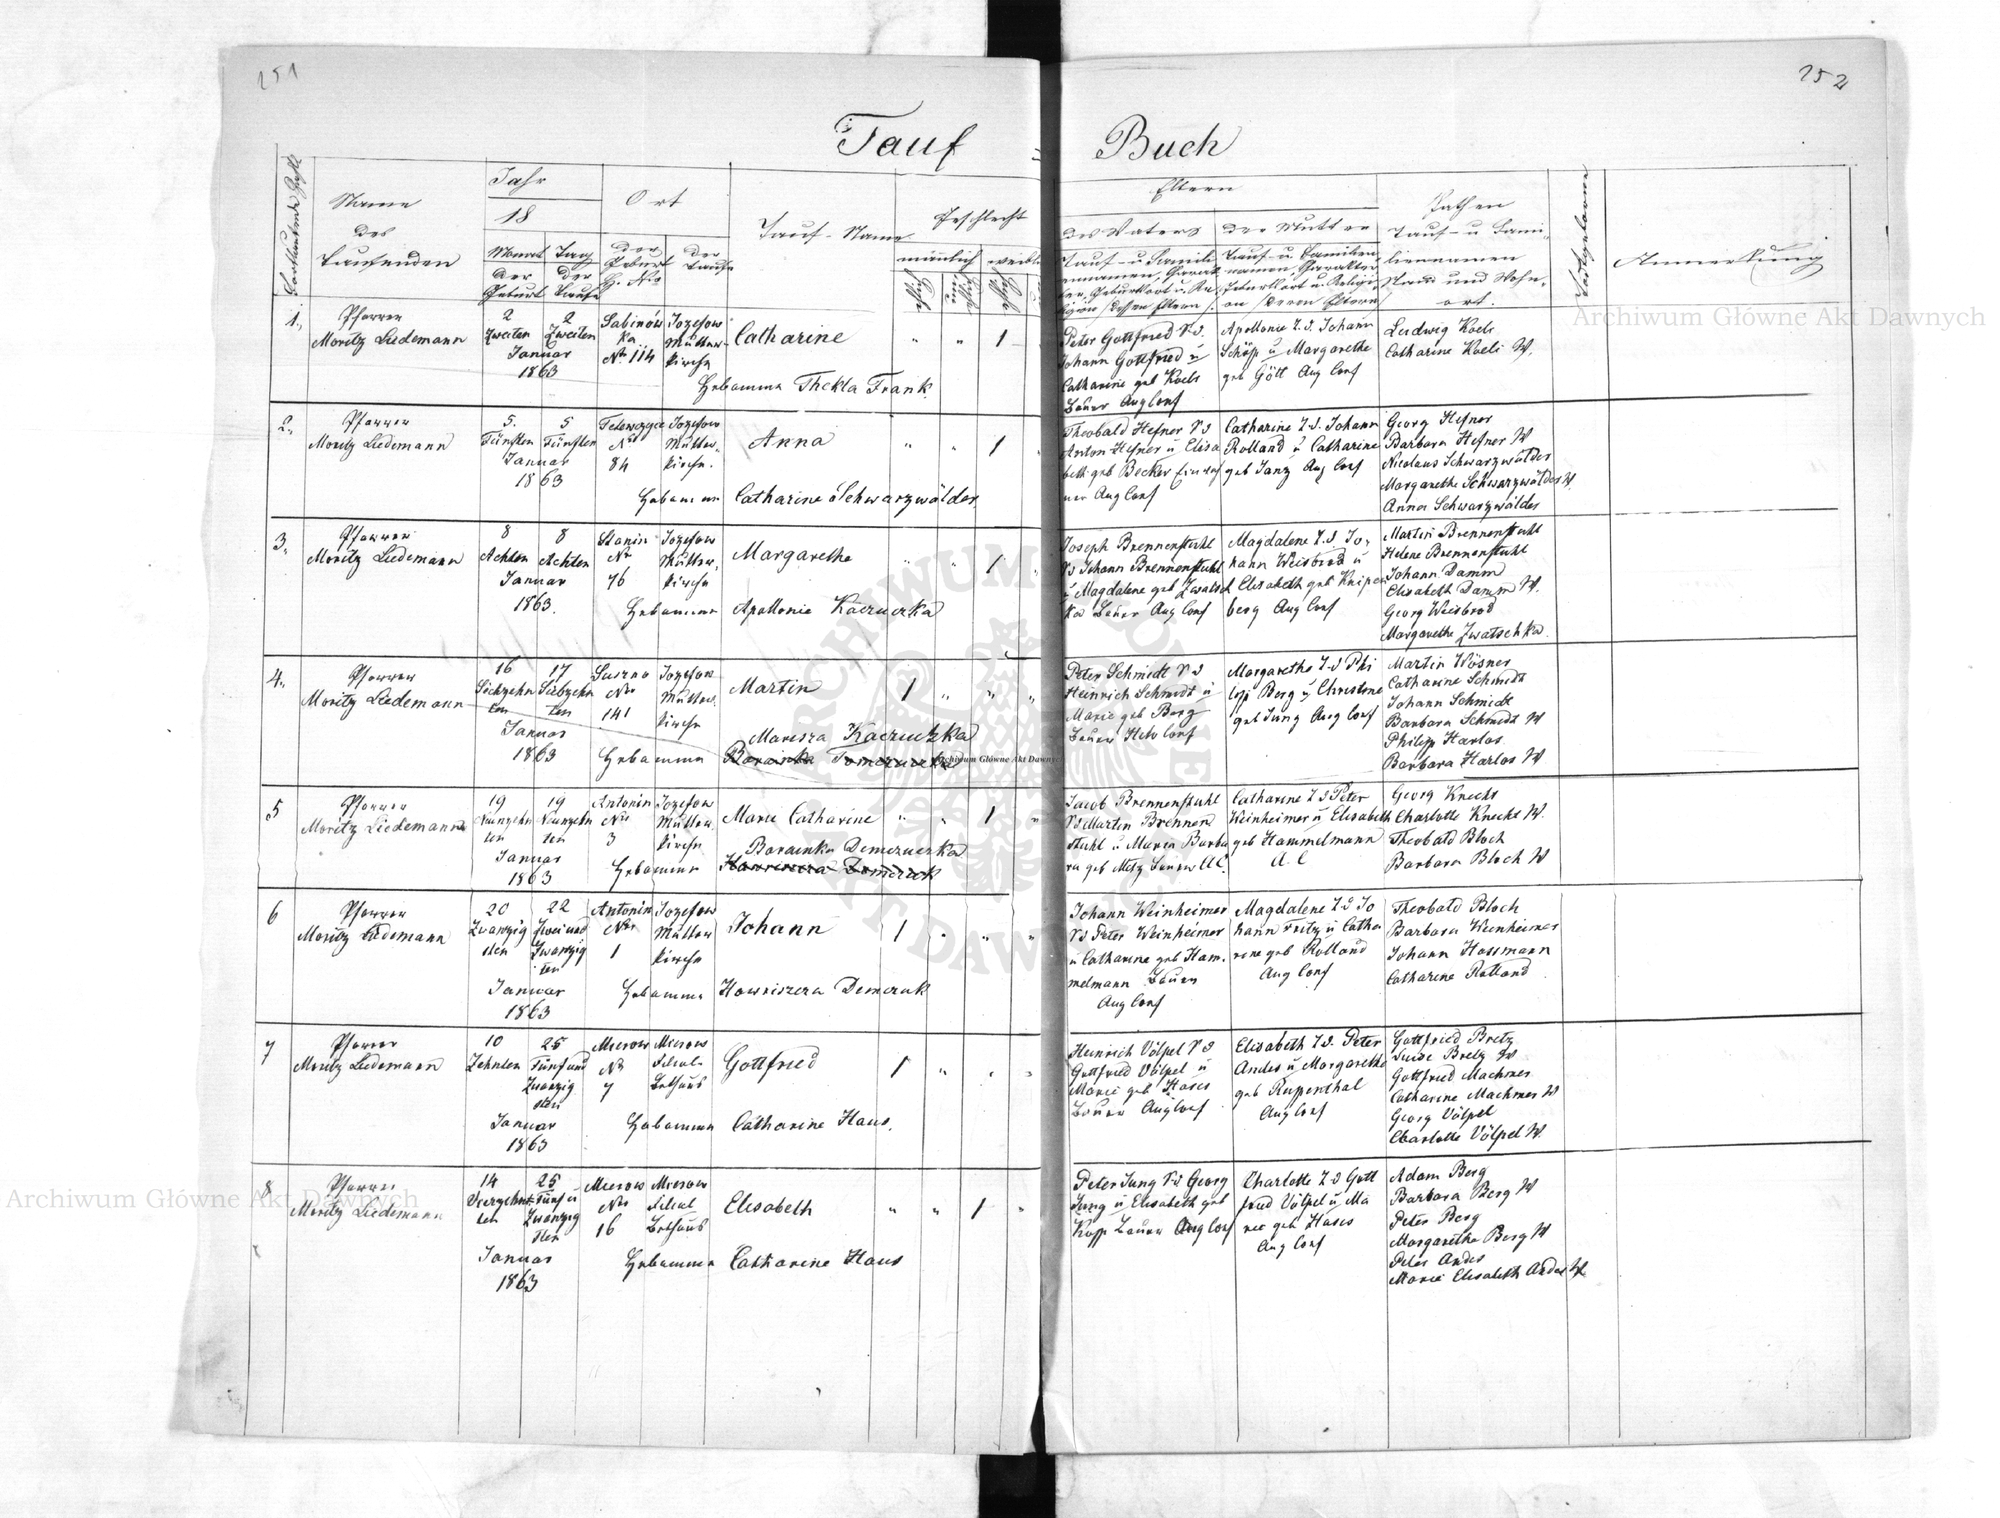 251
252
Tauf = Buch
Fortlaufende Zahl
Name
des
Taufenden
Jahr
18
Monat
der
Geburt
Tag
der
Taufe
Ort
der
Geburt
H. Nro
der
Taufe
Tauf-Name
Geschlecht
männlich
weibl
Eltern
des Vaters
der Mutter
Pathen
Tauf- u Fami-
liennamen
Stand und Wohn-
ort.
Todtgeborene
Anmerkung
1.
Pfarrer
Moritz Liedemann
2
Zweiten
2
Zweiten
Januar
1863
Sabinów
ka
Nr. 114
Jozefow
Mutter-
kirche
Catharine
" " 1
Hebamme Thekla Frank.
Peter Gottfried V.S.
Johann Gottfried u
Catharine geb Koeli
Bauer Aug Conf
Apollonie T.d. Johann
Schöpp u Margarethe
geb Gött Aug Conf
Ludwig Koeli
Catharine Koeli W.
2.
Pfarrer
Moritz Liedemann
5.
Fünften
5
Fünften
Januar
1863
Nro
84
Jozefow
Mutter-
kirche.
Anna
" " 1
Hebamme Catharine Schwarzwälder
Theobald Hefner V S
Anton Hefner u Elisa
beth geb Becker Einwoh
ner Aug Conf
Catharine T.d. Johann
Rolland u Catharine
geb Janz Aug Conf
Georg Hefner
Barbara Hefner W
Nicolaus Schwarzwälder
Margarethe Schwarzwälder W.
Anna Schwarzwälder
3.
Pfarrer
Moritz Liedemann
8
Achten
8
Achten
Januar
1863.
Stanin
Nro
76
Jozefow
Mutter-
kirche
Margarethe
" " 1
Hebamme Apollonie Kaczuczka
Joseph Brennenstuhl
VS Johann Brennenstuhl
u Magdalene geb Zwatsch
ka Bauer Aug Conf
Magdalene T.d Jo-
hann Weisbrod u
Elisabeth geb Knipen
berg Aug Conf
Martin Brennenstuhl
Helene Brennenstuhl
Johann Damm
Elisabeth Damm W.
Georg Weisbrod
Margarethe Zwatschka.
4.
Pfarrer
Moritz Liedemann
16
Sechzehn
ten
17
Siebzehn
ten
Januar
1863
Nro
141
Jozefow
Mutter-
kirche
Martin
1 " " "
Hebamme
Marisza Kaczuczka
Peter Schmidt V S
Heinrich Schmidt u
Marie geb Berg
Bauer Helv Conf
Margarethe T.d Phi
lipp Berg u Christine
geb Jung Aug Conf
Martin Wösner
Catharine Schmidt
Johann Schmidt
Barbara Schmidt W
Philipp Harlos
Barbara Harlos W
5
Pfarrer
Moritz Liedemann
19
Neunzehn
ten
19
Neunzehn
ten
Januar
1863
Antonin
Nro
3
Jozefow
Mutter-
kirche
Marie Catharine
" " 1 "
Hebamme
Baraenka Demczuczka
Jacob Brennenstuhl
VS Martin Brennen
stuhl u Maria Barba
ra geb Metz Bauer A C.
Catharine T d Peter
Weinheimer u Elisabeth
geb Hammelmann
A. C
Georg Knecht
Charlotte Knecht W.
Theobald Bloch
Barbara Bloch W
6
Pfarrer
Moritz Liedemann
20
Zwanzig
sten
22
Zwei und
Zwanzig
sten
Januar
1863
Antonin
Nro
1
Jozefow
Mutter
kirche
Johann
1 " " "
Hebamme Hawriszera Demczuk
Johann Weinheimer
VS Peter Weinheimer
u Catharine geb Ham-
melmann Bauer
Aug Conf
Magdalene T d Jo
hann Fritz u Catha
rine geb Rolland
Aug Conf
Theobald Bloch
Barbara Weinheimer
Johann Hassmann
Catharine Rolland
7
Pfarrer
Moritz Liedemann
10
Zehnten
25
Fünf und
Zwanzig
sten
Januar
1863
Mierow
Nro
7
Mierow
Filial-
bethaus
Gottfried
1 " " "
Hebamme Catharine Haus.
Heinrich Völpel V S
Gottfried Völpel u
Marie geb Hasis
Bauer Aug Conf
Elisabeth T.d. Peter
Andes u Margarethe
geb Ruppenthal
Aug Conf
Gottfried Bretz
Luise Bretz W
Gottfried Machmer
Catharine Machmer W
Georg Völpel
Charlotte Völpel W.
8
Pfarrer
Moritz Liedemann
14
Vierzehn
ten
25
Fünf u
Zwanzig
sten
Januar
1863
Mierow
Nro
16
Mierow
Filial
bethaus
Elisabeth
" " 1 "
Hebamme Catharine Haus
Peter Jung VS Georg
Jung u Elisabeth geb
Kopp Bauer Aug Conf
Charlotte T d Gott
fried Völpel u Ma
rie geb Hasis
Aug Conf
Adam Berg
Barbara Berg W
Peter Berg
Margarethe Berg W
Peter Andes
Marie Elisabeth Andes W.
Archiwum Główne Akt Dawnych
Archiwum Główne Akt Dawnych
Archiwum Główne Akt Dawnych